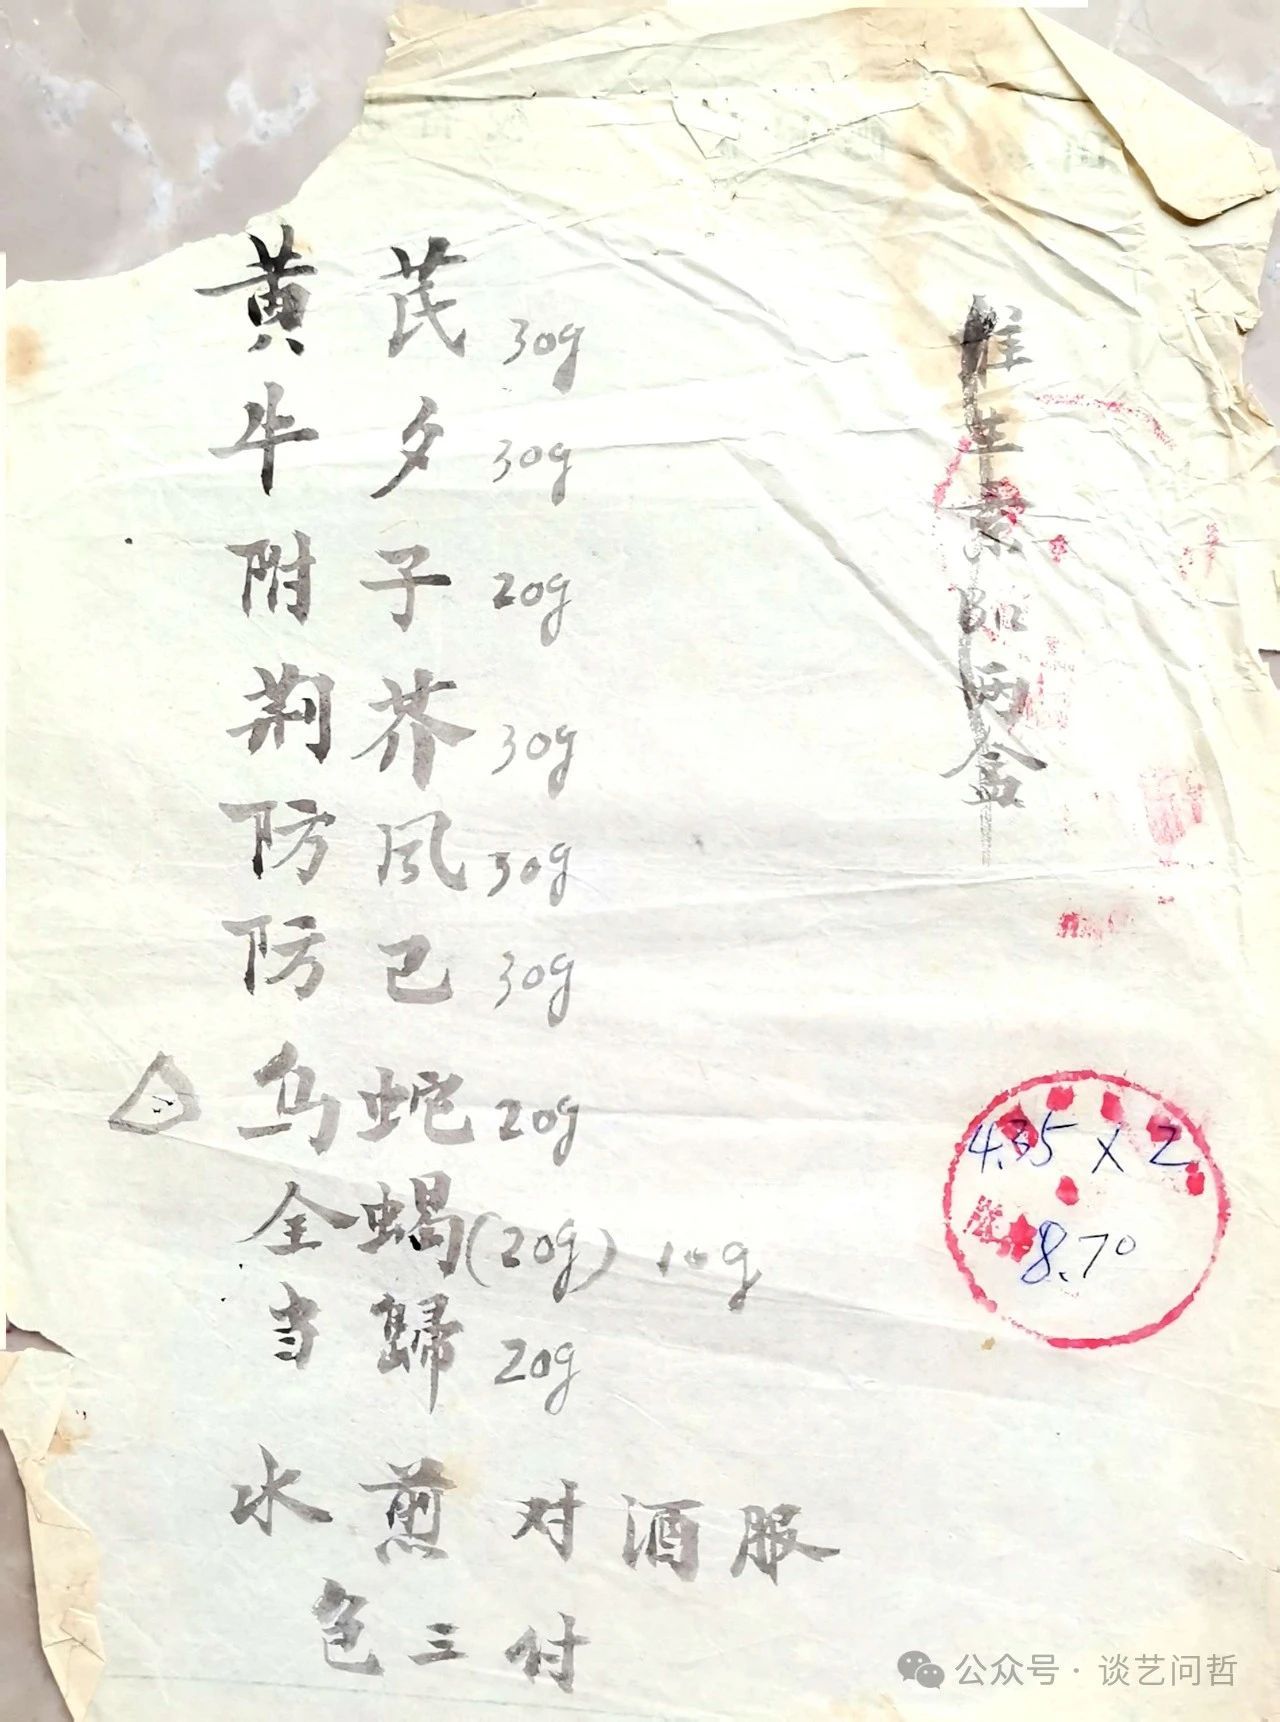 黄芪 30g
牛夕 30g
附子 20g
荆芥 30g
防风 30g
防己 30g
乌蛇 20g
全蝎(20g) 10g
当歸 20g
水煎对酒服
包三付
维生素B12两盒
4.35 x 2
8.70
公众号·谈艺问哲